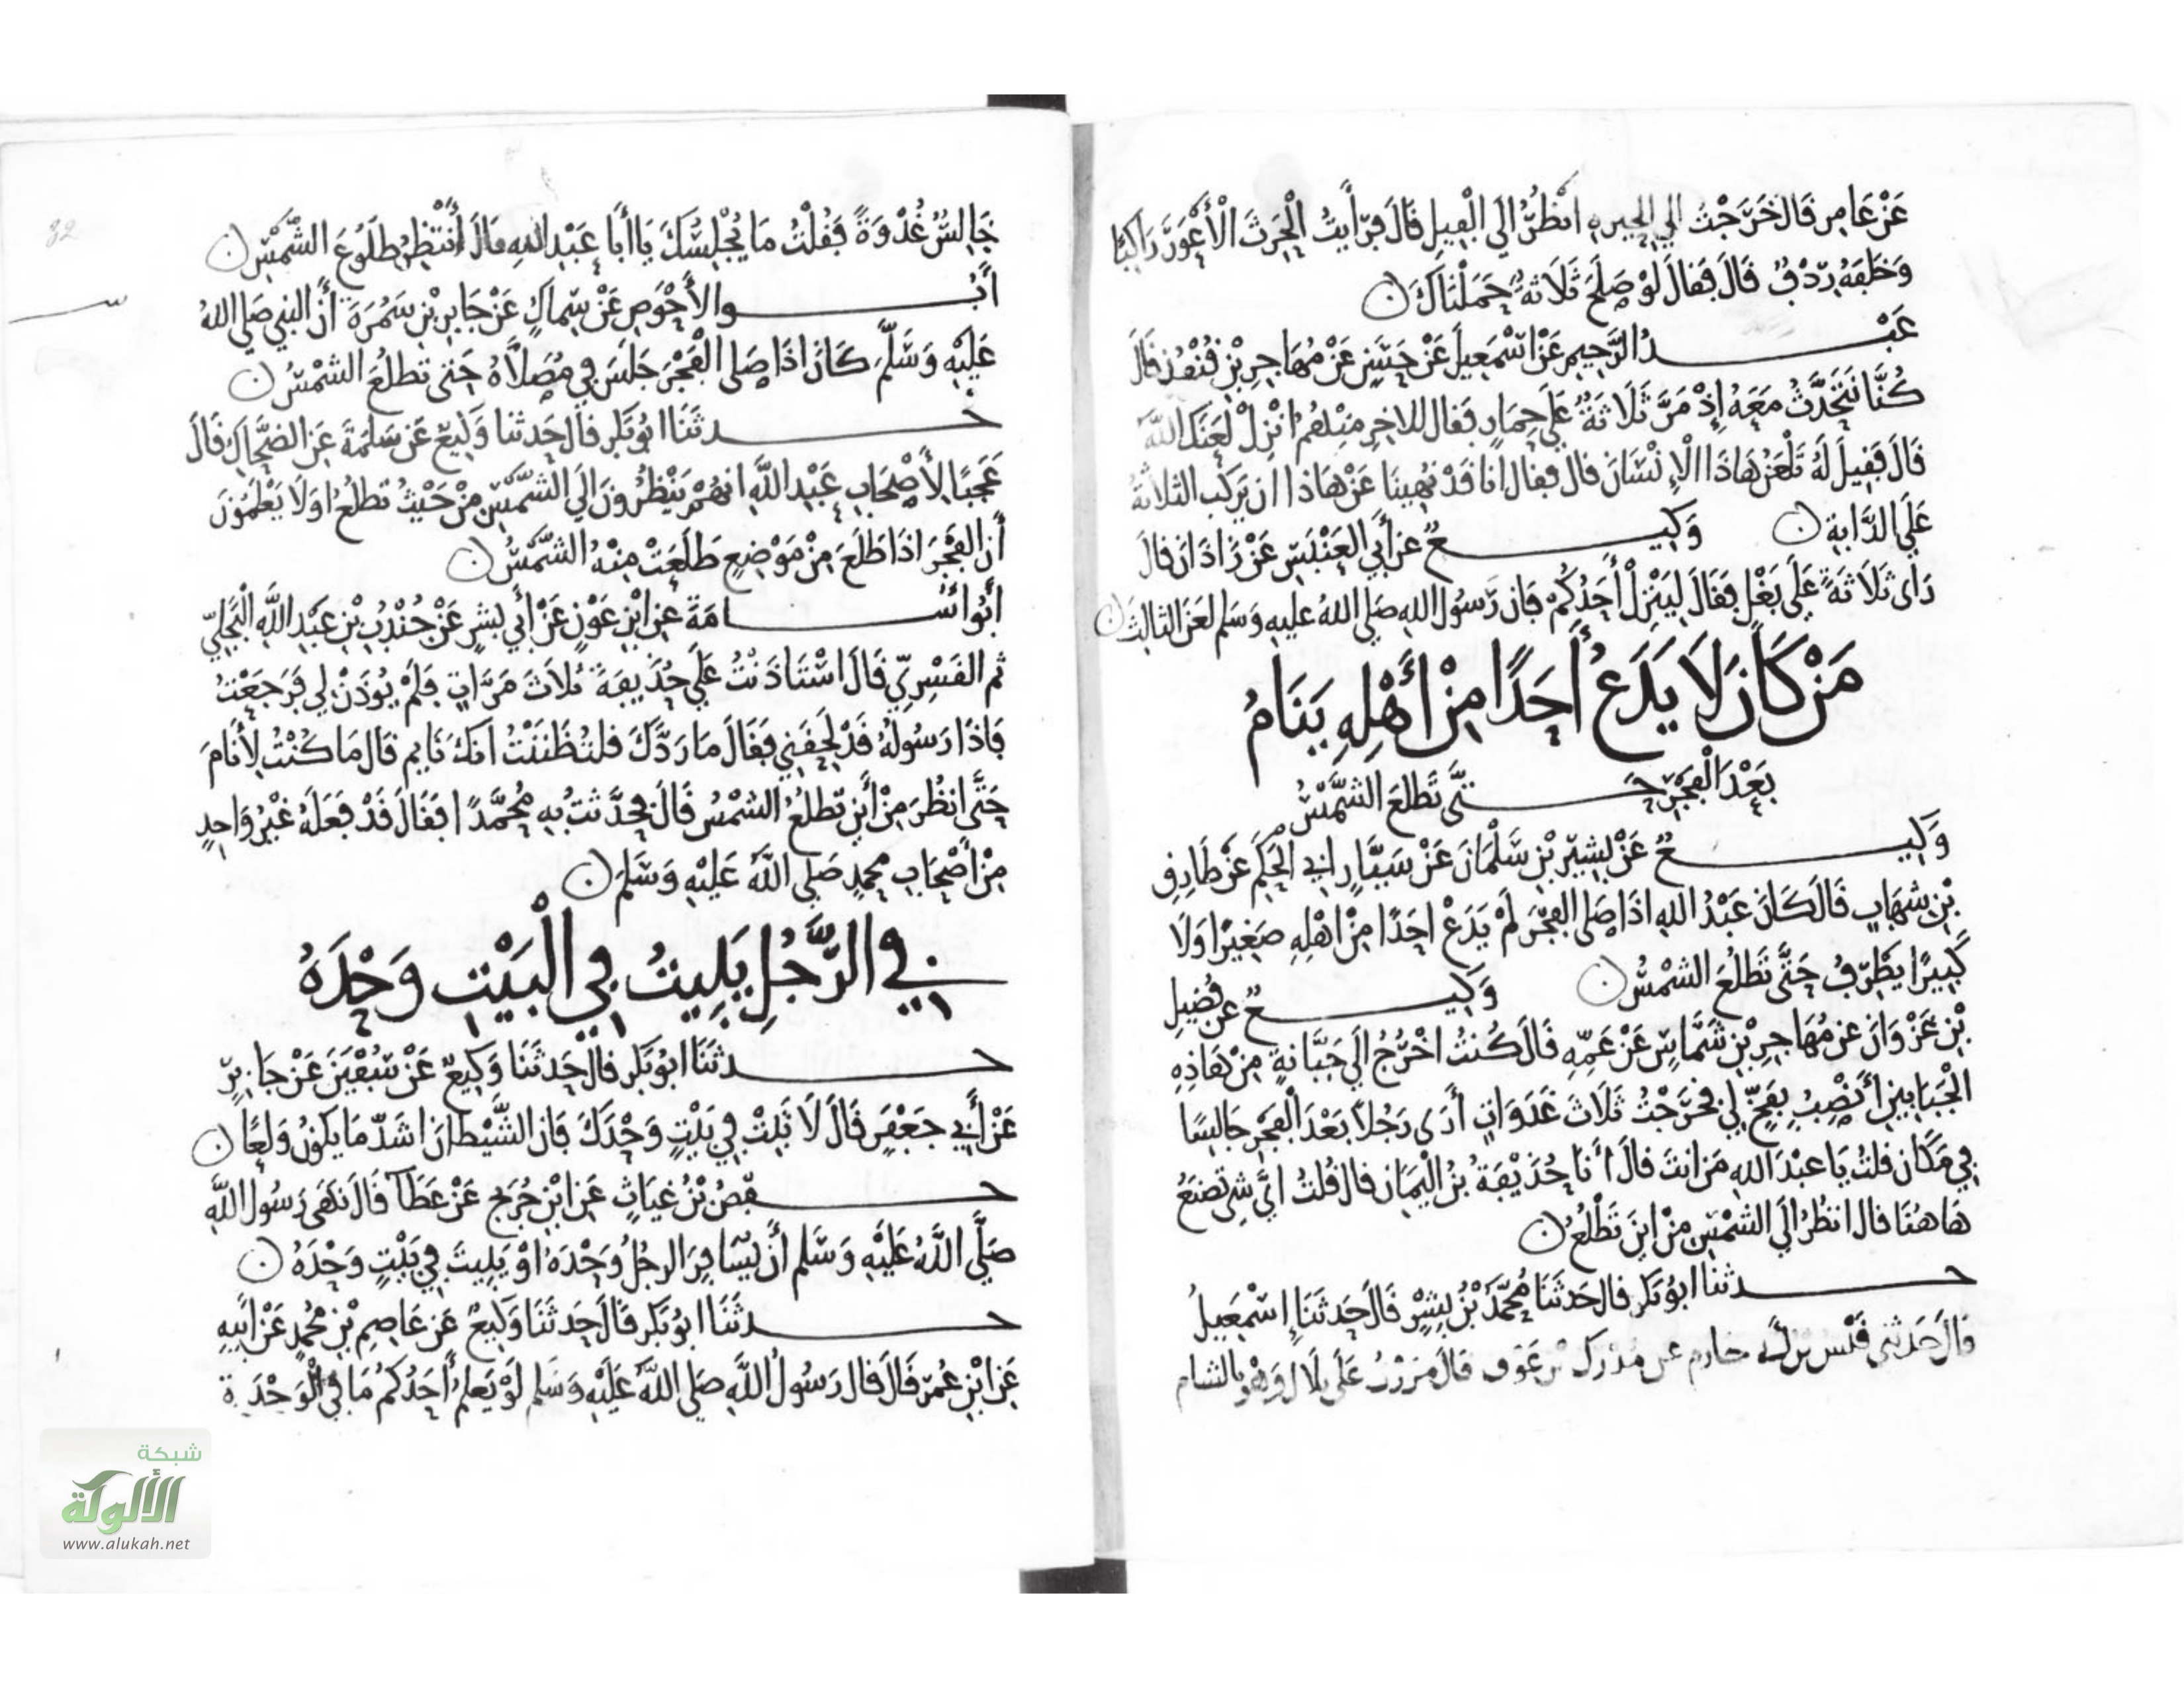 عَنْ عَامِرٍ قَالَ خَرَجْتُ إلي الحيرهِ انْظُرُ إلَي الْفِيلِ قَالَ فَرَأَيْتُ الْحَرِثَ الْأَعْوَرَ رَاكِبًا
وَخَلْفَهُ رِدْفٌ قَالَ فَقَالَ لَوْ صَلَحَ ثَلَاثَةٌ حَمَلْنَاكَ ن
عَبْدُ الرَّحِيمِ عَنْ اسْمَعِيلَ عَنْ حَسَنٍ عَنْ مُهَاجِرِ بْنِ قُنْفُذٍ قَالَ
كُنَّا نَتَحَدَّثُ مَعَهُ إِذْ مَرَّ ثَلَاثَةٌ عَلَي حِمَارٍ فَقَالَ للاخِرِ مِنْهُمُ انْزِلْ لَعَنَكَ اللَّهُ
قَالَ فَقِيلَ لَهُ تَلْعَنُ هَاذَا الْإِنْسَانَ قال فقال انا قَدْ نُهِينَا عَنْ هَاذَا ان يَرْكَب الثلاثَةُ
عَلَي الدَّابةِ ن وَكِيعٌ عن أَبي العَنْبَسِ عَنْ زَاذَانَ قالَ
رَأى ثَلَاثَةً عَلَي بَغْلٍ فَقَالَ لِيَنْزِلْ أَحَدُكُمْ فَإن رَسُولَ اللهِ صَلي اللهُ عليهِ وَسَلم لَعَنَ الثالِثَ ن
مَنْ كَانَ لَا يَدَعُ أَحَدًا مِنْ أَهْلِهِ يَنَامُ
بَعْدَ الْفَجْرِ حَتَّي تَطْلعَ الشَّمْسُ
وَكِيعٌ عَنْ بشِيْرِ بْنِ سَلْمَانَ عَنْ سَيَّارٍ ابي الحَكمِ عَنْ طَارِقِ
بْنِ شهَابٍ قَالَ كَانَ عَبْدُ اللهِ اذَا صَلي الفَجْرَ لَمْ يَدَعْ احَدًا مِنْ اهْلِهِ صَغِيْرًا وَلَا
كَبِيرًا يطْرِفُ حَتَّي تَطْلُعَ الشمْسُ ن وَكِيعٌ عن فُضيلِ
بْنِ غَزْوَانَ عن مُهَاجِرِ بْنِ شَمَّاسٍ عَنْ عَمِّهِ قَالَ كُنتُ اخْرُجُ الَي جَبَّانةٍ مِنْ هَاذِهِ
الْجَبَابينِ أَنْصِبُ بِفَخٍّ لي فخَرَجْتُ ثَلَاثَ غَدَوَاتٍ أَرَى رَجُلًا بَعْدَ الْفَجرِ جَالِسًا
في مَكَان فقلتُ يَا عبْدَ اللهِ مَن انتَ قالَ أَنَا حُذَيْفَةُ بْنُ الْيَمَانِ قال قُلتُ ايَّ شي تَصْنَعُ
هَاهُنَا قال انظُرُ الَي الشمْسِ مِنْ اينَ تَطْلُعُ ن
حدثنا ابوُ بَكر قال حَدثَنَا مُحَمَّدُ بْنُ بِشْرٍ قَالَ حَدثَنَا إِسْمَعِيلُ
قال حَدثني قَيْس بن أبي حازم عن مُدْرِك بْنِ عَوْف قالَ مَرَرْتُ عَلَي بلَال وَهْوَ بالشام
جَالِسٌ غُدْوَةً فَقُلْتُ مَا يُجْلِسُكَ يَا أَبَا عَبْدِ اللهِ قَالَ أَنْتَظِرُ طُلُوعَ الشَّمْسِ ن
أَبُو الأَحْوَصِ عَنْ سِمَاكٍ عَنْ جَابِرِ بْنِ سَمُرَةَ أَنَّ النبي صَلي اللهُ
عَلَيْهِ وَسَلَّمَ كَانَ إذَا صَلى الْفَجْرَ جَلَسَ فِي مُصَلَّاهُ حَتى تَطلُعَ الشَمْسُ ن
حدثَنَا ابُو بَكر قال حَدثنا وَكِيعٌ عَن سَلمَةَ عَنِ الضحَّاكِ قَالَ
عَجَبًا لِأَصْحَابِ عَبْدِ اللَّهِ انهُمْ يَنْظُرُونَ الَي الشَّمْسِ مِنْ حَيْثُ تَطلُعُ اوَلَا يَعْلَمُونَ
أَن الفَجْرَ اذَا طَلَعَ مِنْ مَوْضِعٍ طَلَعَتْ مِنْهُ الشَّمْسُ ن
أَبُوا أُسَامَةَ عن ابْنِ عَوْنٍ عَنْ أَبي بشرٍ عَنْ جُنْدُبِ بْنِ عَبْدِ اللَّهِ الْبَجَلِيّ
ثم الْقَسْرِيّ قَالَ اسْتَاذَنْتُ عَلَي حُذَيفَةَ ثَلَاثَ مَرَّاتٍ فَلَمْ يُوذَنْ لي فَرَجَعْتُ
فَاذَا رَسُولُهُ قَدْ لَحِقَنِي فَقَالَ مَا رَدَّكَ قلتُ ظَنَنْتُ انكَ نَايم قَالَ مَا كُنْتُ لِأَنَامَ
حَتَّى انْظُرَ مِنْ أَين تَطلُعُ الشمْسُ قَالَ فحَدَّثتُ بِهِ مُحَمَّدًا فَقَالَ قَدْ فَعَلَهُ غَيْرُ وَاحِدٍ
مِنْ أَصْحَابِ محمدٍ صَلي اللَّهُ عَلَيْهِ وَسَلمَ ن
في الرَّجُلِ يَبِيتُ فِي الْبَيْتِ وَحْدَهُ
حدثَنَا ابُو بَكر قال حَدثَنَا وَكِيعٌ عَنْ سُفْيَنَ عَنْ جَابِرٍ
عَنْ أَبي جَعْفَرٍ قَالَ لَا تَبِتْ فِي بَيْتٍ وَحْدَكَ فَإن الشَّيْطَانَ اشَدّ مَا يكُونُ وَلَعًا ن
حفْصُ بْنُ غِيَاثٍ عَنِ ابْنِ جُرَيج عَنْ عَطَآ قَالَ نَهَى رَسُولُ اللَّهِ
صَلَّي اللَّهُ عَلَيْهِ وَسَلم أَنْ يُسَافِرَ الرجُلُ وَحْدَهُ اوْ يَبِيتَ فِي بَيْتٍ وَحْدَهُ ن
حدثَنَا ابُو بَكر قَالَ حَدثَنَا وَكِيعٌ عَن عَاصِمِ بْنِ مُحَمدٍ عَنْ ابيهِ
عَنِ ابْنِ عُمَرَ قَالَ قال رَسُولُ اللَّهِ صَلي اللَّهُ عَلَيْهِ وَسَلم لَوْ يَعلمُ أَحَدُكمُ مَا فِي الْوَحْدَةِ
32
شبكة
الألوكة
www.alukah.net